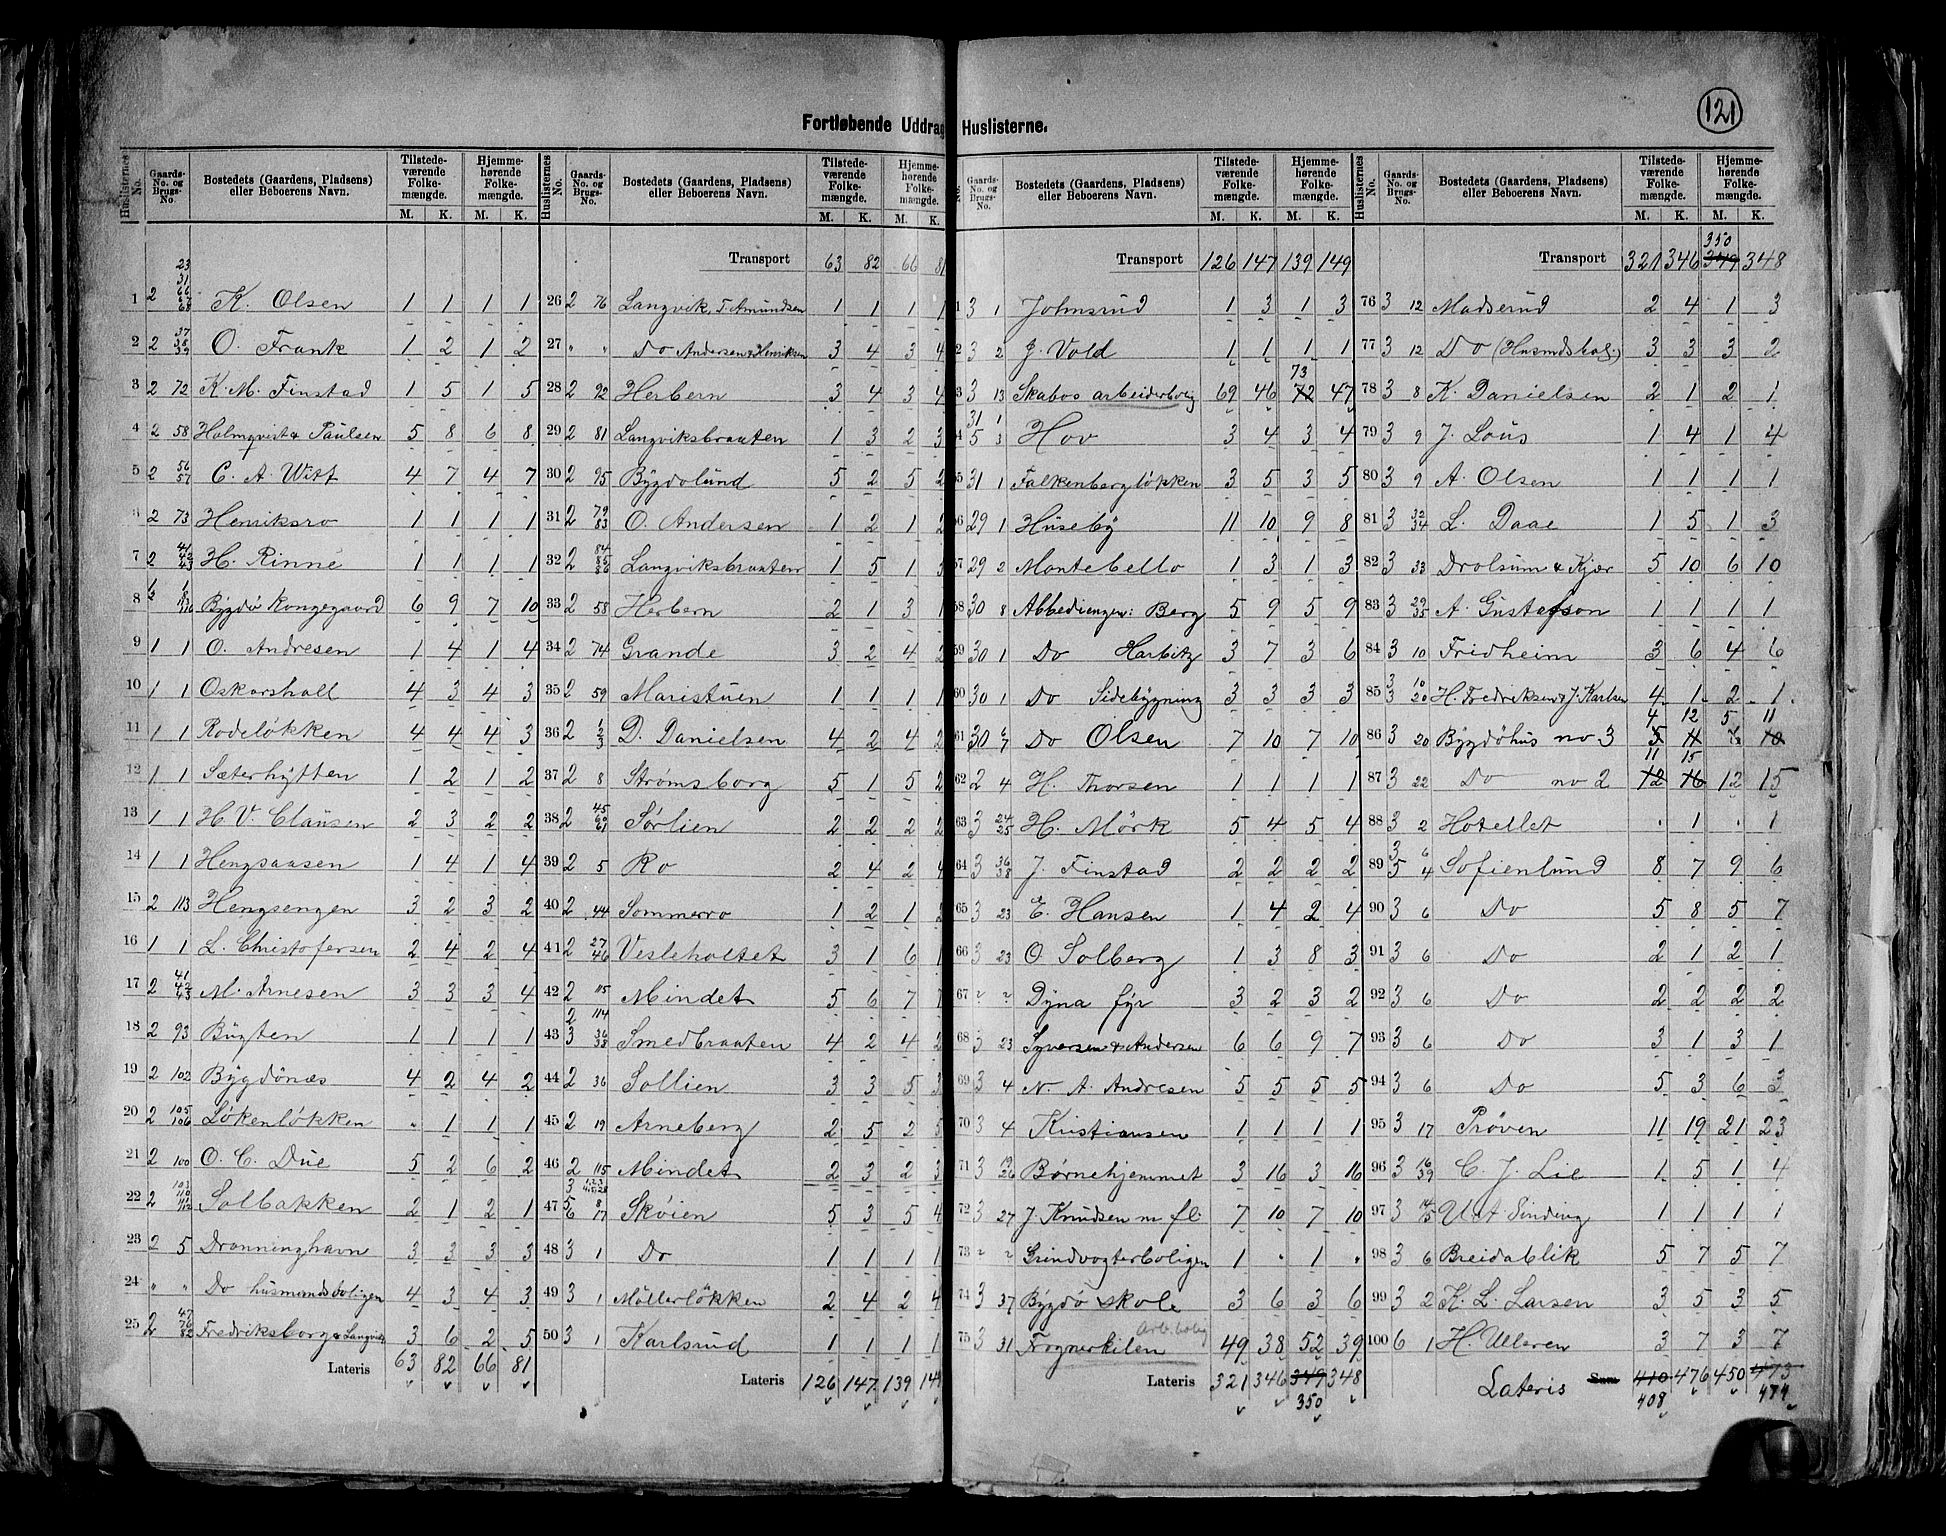 121
Fortløbende Uddrag Huslisterne.
Huslisternes No. Gaards-No. og Brugs-No. Bostedets (Gaardens, Pladsens) eller Beboerens Navn. Tilstedeværende Folkemængde. M. K. Hjemmehørende Folkemængde. M. K.
1 2 23 31 66 68 K. Olsen 1 1 1 1
2 2 37 38 39 O. Frank 1 2 1 2
3 2 72 K. M. Finstad 1 5 1 5
4 2 58 Holmqvist & Paulsen 5 8 6 8
5 2 56 57 C. A. Witt 4 7 4 7
2 73 Henriksro 1 1 1 1
7 2 H. Rinne 1 1 1 1
8 Bygdö Kongegaard 6 9 7 10
9 1 1 O. Andresen 1 4 1 4
10 1 1 Oskarshall 4 3 4 3
11 1 1 Rodeløkken 4 4 4 3
12 1 1 Sæterhytten 1 2 1 2
13 1 1 H. V. Clausen 2 3 2 2
14 1 1 Hengsaasen 1 4 1 4
15 2 113 Hengsengen 3 2 3 2
16 1 1 L. Christofersen 2 4 2 4
17 2 41 42 43 M. Arnesen 3 3 3 4
18 2 93 Bugten 1 1 1 1
19 2 102 Bygdönæs 4 2 4 2
20 2 105 106 Løkenløkken . 1 1 1
21 2 100 O. C. Due 5 2 6 2
22 2 103 110 112 Solbakken 2 1 2 1
23 2 5 Dronninghavn 3 3 3 3
24 " " Do husmandsboligen 4 3 4 3
25 2 47 76 82 Fredriksborg & Langvik 3 6 2 5
Lateris 63 82 66 81
Transport 63 82 66 81
26 2 76 Langvik, T. Amundsen 1 1 1 1
27 " " Do Andersen & Henriksen 3 4 3 4
28 2 92 Herbern 3 4 3 4
29 2 81 Langviksbraaten 1 3 2 3
30 2 95 Bygdølund 5 2 5 2
31 2 79 83 O. Andersen 1 2 1 2
32 2 84 85 86 Langviksbraaten 1 5 1
33 2 58 Herbern 2 1 3 1
34 2 74 Grande 3 2 4 2
35 2 59 Maristuen 1 1 1 1
36 2 1 3 D. Danielsen 4 2 4 2
37 2 8 Strømsborg 5 1 5 2
38 2 45 Sørlien 2 2 2 2
39 2 5 Ro 2 4 2 4
40 2 44 Sommerro 1 2 1 2
41 2 27 46 Vesleholtet 3 1 6 1
42 2 115 Mindet 5 6 7 7
43 2 3 114 36 38 Smedbraaten 4 2 4 2
44 2 36 Sollien 3 3 5 3
45 2 19 Arneberg 2 5 2 5
46 2 115 Mindet 2 3 2 3
47 Skøien 5 3 5 4
48 3 1 Do 1 1 1 1
49 3 1 Møllerløkken 2 4 2 4
50 3 1 Karlsrud 1 1 1 1
Lateris 126 147 139 149
Transport 126 147 139 149
1 3 1 Johnsrud 1 3 1 3
2 3 2 J. Vold 1 1 1 1
3 3 13 Skabos arbeiderbolig 69 46 73 72 47
4 31 5 1 3 Hov 3 4 3 4
55 31 1 Falkenbergløkken 3 5 3 5
56 29 1 Huseby 11 10 9 8
57 29 2 Montebello 1 3 1 3
58 30 8 Abbediengen: Berg 5 9 5 9
59 30 1 Do Harbitz 3 7 3 6
60 30 1 Do Sidebygning 3 3 3 3
61 30 6 7 Do Olsen 7 10 7 10
62 2 4 H. Thorsen 1 1 1 1
63 3 24 25 H. Mörk 5 4 5 4
64 3 36 38 J. Finstad 2 2 2 2
65 3 23 E. Hansen 1 4 2 4
66 3 23 O. Solberg 1 3 8 3
67 " " Dyna fyr 3 2 3 2
68 3 23 Syversen & Andersen 6 6 9 7
69 3 4 N. A. Andresen 5 5 5 5
70 3 4 Kristiansen 1 1 1 1
71 3 19 26 Børnehjemmet 3 16 3 16
72 3 27 J. Knudsen m fl. 7 10 7 10
73 " " Grindvogterboligen 1 . 1 .
74 3 37 Bygdö skole 3 6 3 6
75 3 31 Frognerkilen Arb. bolig 49 38 52 39
Lateris 321 346 349 348
350
Transport 321 346 350 349 348
76 3 12 Madserud 2 4 1 3
77 3 12 Do (Husmdsbol.) 3 3 3 2
78 3 8 K. Danielsen 2 1 2 1
79 3 9 J. Lous 1 4 1 4
80 3 9 A. Olsen 1 1 1 1
81 3 32 34 L. Daae 1 5 1 3
82 3 33 Drolsum & Kjær 5 10 6 10
83 3 29 35 A. Gustafson 1 1 1 1
84 3 10 Fridheim 3 6 4 6
85 3 3 10 20 H. Fredriksen & J. Karlsen 4 1 2 1
86 3 20 Bygdöhus no 3 4 12 5 11 5 11 10
87 3 22 Do no 2 11 15 12 16 12 15
88 3 2 Hotellet . 1 . 1
89 3 5 6 4 Sofienlund 8 7 9 6
90 3 6 Do 5 8 5 7
91 3 6 Do 2 1 2 1
92 3 6 Do 2 2 2 2
93 3 6 Do 3 1 3 1
94 3 6 Do 5 3 6 3
95 3 17 Prøven 11 19 21 23
96 3 16 39 C. J. Lie 1 5 1 4
97 3 Sinding 1 1 1 1
98 3 6 Breidablik 5 7 5 7
99 3 2 K. L. Larsen 3 5 3 5
100 6 1 H. Ulleren 3 7 3 7
Lateris Sum 410 476 450 473
408 474